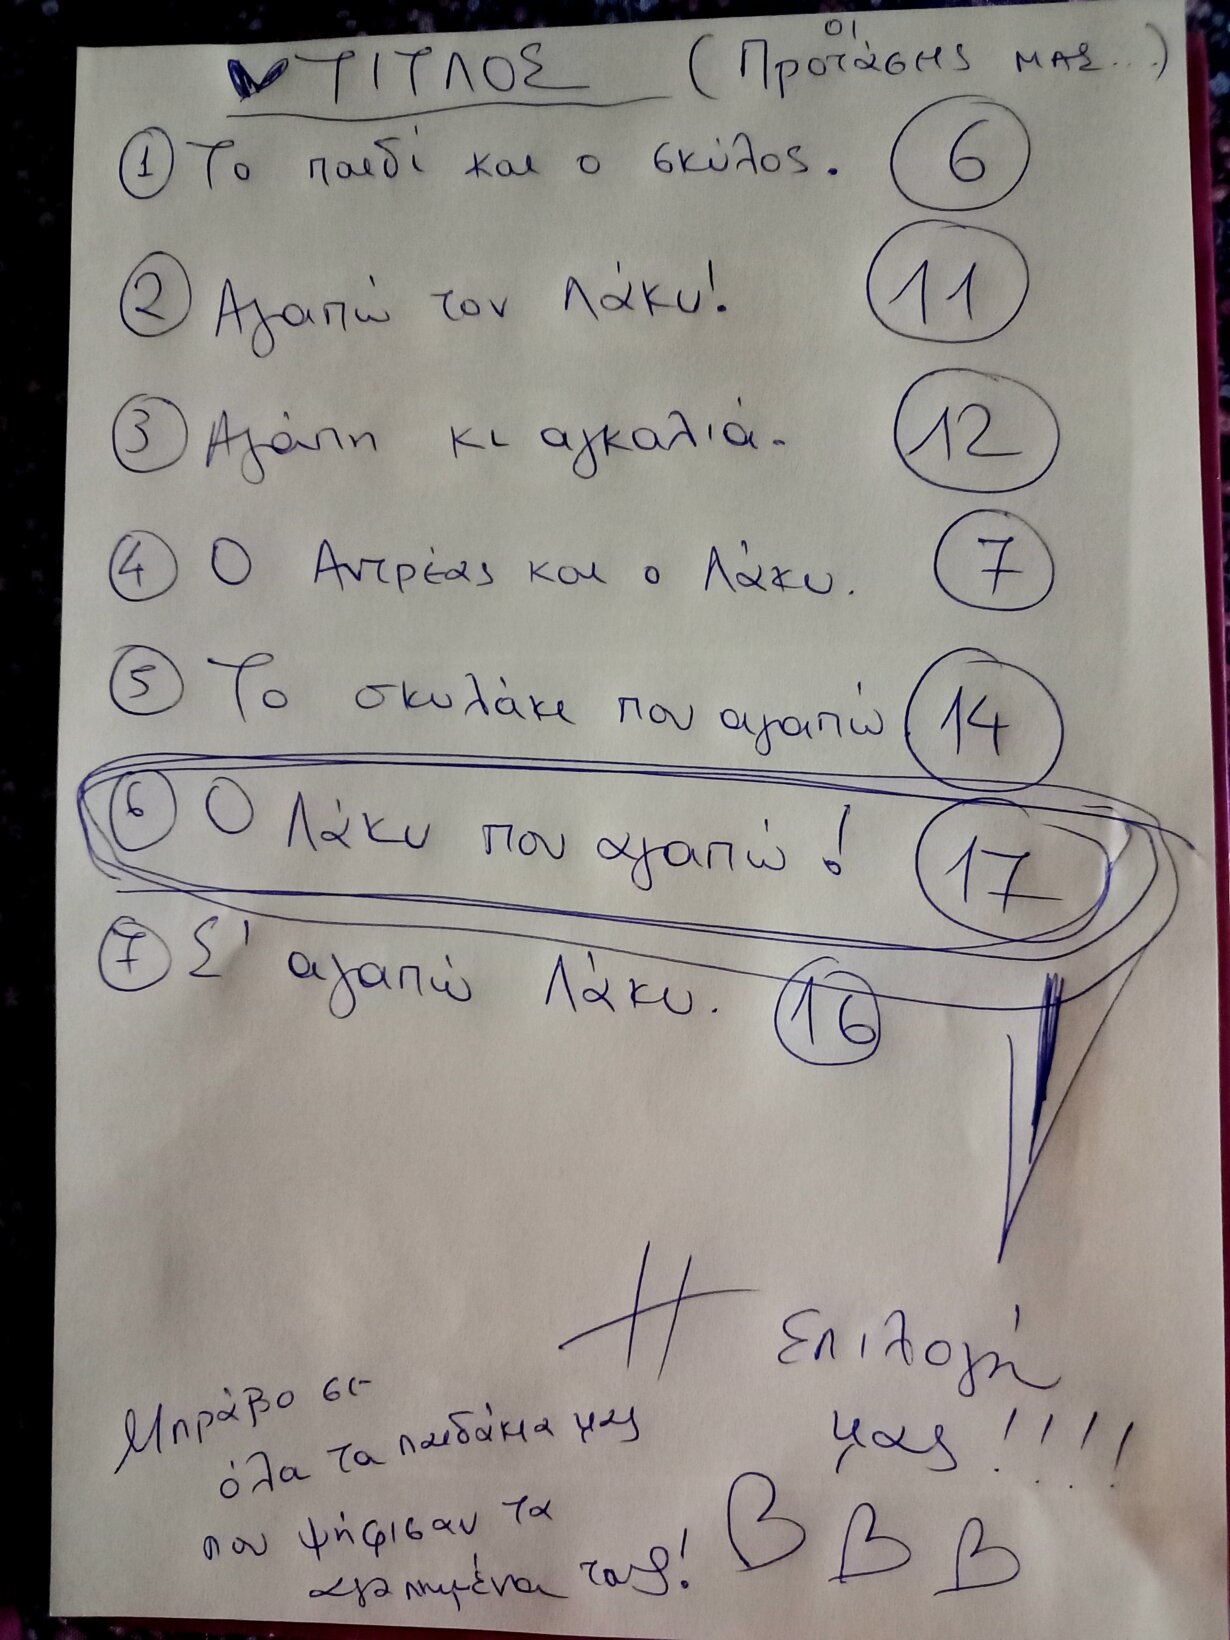 ΤΙΤΛΟΣ (Οι Προτάσης μας...)
1 Το παιδί και ο σκύλος. 6
2 Αγαπώ τον Λάκυ! 11
3 Αγάπη κι αγκαλιά. 12
4 Ο Αντρέας και ο Λάκυ. 7
5 Το σκυλάκι που αγαπώ 14
6 Ο Λάκυ που αγαπώ! 17
7 Σ' αγαπώ Λάκυ. 16
Η επιλογή
μας!!!!
Μπράβο σε
όλα τα παιδάκια μας
που ψήφισαν τα
αγαπημένα τους!